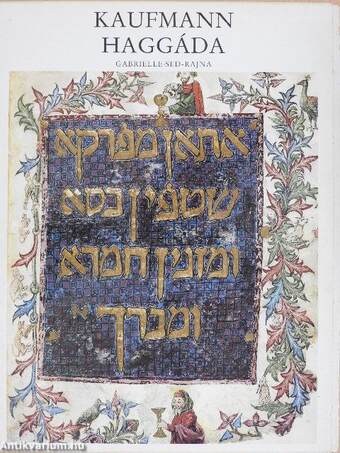 KAUFMANN
HAGGÁDA
GABRIELLE-SED-RAJNA
אתאן מפרקא
שטפין כסא
ומזגין חמרא
ומברך
Antikvarium.hu